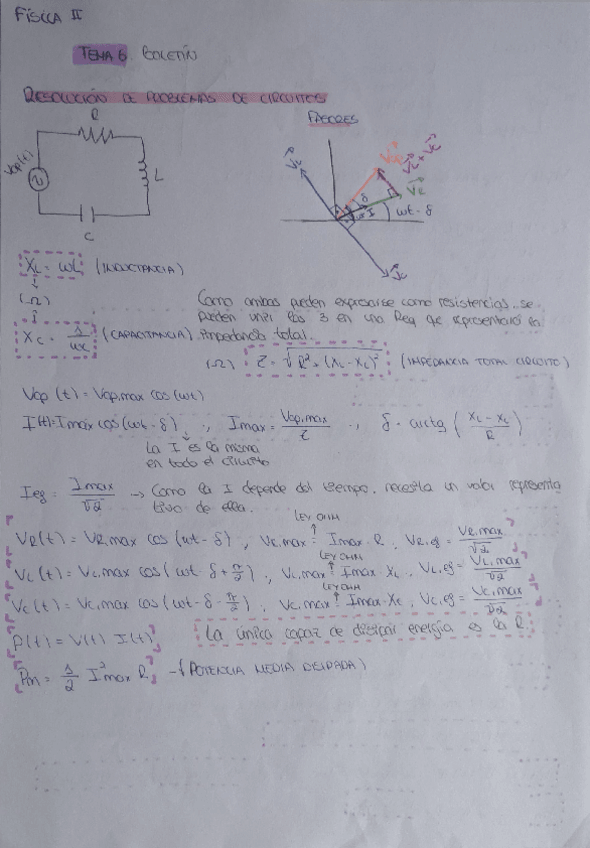 FÍSICA II
TEMA 6 BOLETÍN
RESOLUCIÓN DE PROBLEMAS DE CIRCUITOS
R
Vap(t)
L
C
FASORES
V⃗L
V⃗ap
V⃗L + V⃗C
V⃗R
δ
I
ωt - δ
V⃗C
XL = ωL (INDUCTANCIA)
(Ω)
XC = 1/ωC (CAPACITANCIA)
Como ambas pueden expresarse como resistencias, se
pueden unir las 3 en una Req que representará la
impedancia total.
(Ω) Z = √R² + (XL - XC)² (IMPEDANCIA TOTAL CIRCUITO)
Vap (t) = Vap,max cos (ωt)
I(t) = Imax cos (ωt - δ) ., Imax = Vap,max/Z ., δ = arctg (XL - XC/R)
La I es la misma
en todo el circuito
Ief = Imax/√2 → Como la I depende del tiempo, necesita un valor representa
tivo de ella.
LEY OHM
VR(t) = VR,max cos (ωt - δ) , VR,max = Imax · R , VR,ef = VR,max/√2
LEY OHM
VL(t) = VL,max cos (ωt - δ + π/2) , VL,max = Imax · XL , VL,ef = VL,max/√2
LEY OHM
VC(t) = VC,max cos (ωt - δ - π/2) , VC,max = Imax · XC , VC,ef = VC,max/√2
P(t) = V(t) I(t)
La única capaz de disipar energía es la R.
Pm = 1/2 I²max R
(POTENCIA MEDIA DISIPADA)